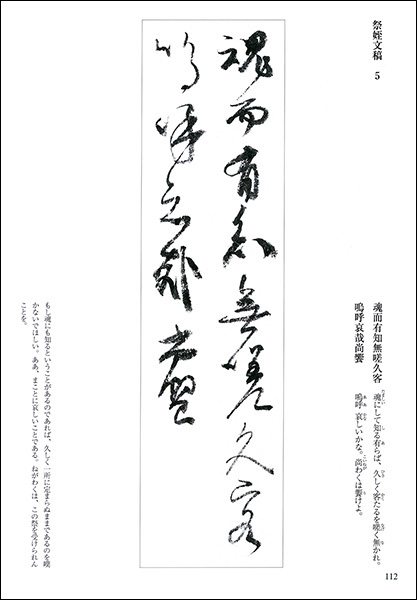 祭姪文稿 5
魂而有知無嗟久客
嗚呼哀哉尚饗
魂にして知る有らば、久しく客たるを嗟く無かれ。
嗚呼 哀しいかな。尚わくは饗けよ。
魂而有知無嗟久客
嗚呼哀哉尚饗
もし魂にも知るということがあるのであれば、久しく一所に定まらぬままであるのを嘆
かないでほしい。ああ、まことに哀しいことである。ねがわくは、この祭を受けられん
ことを。
112